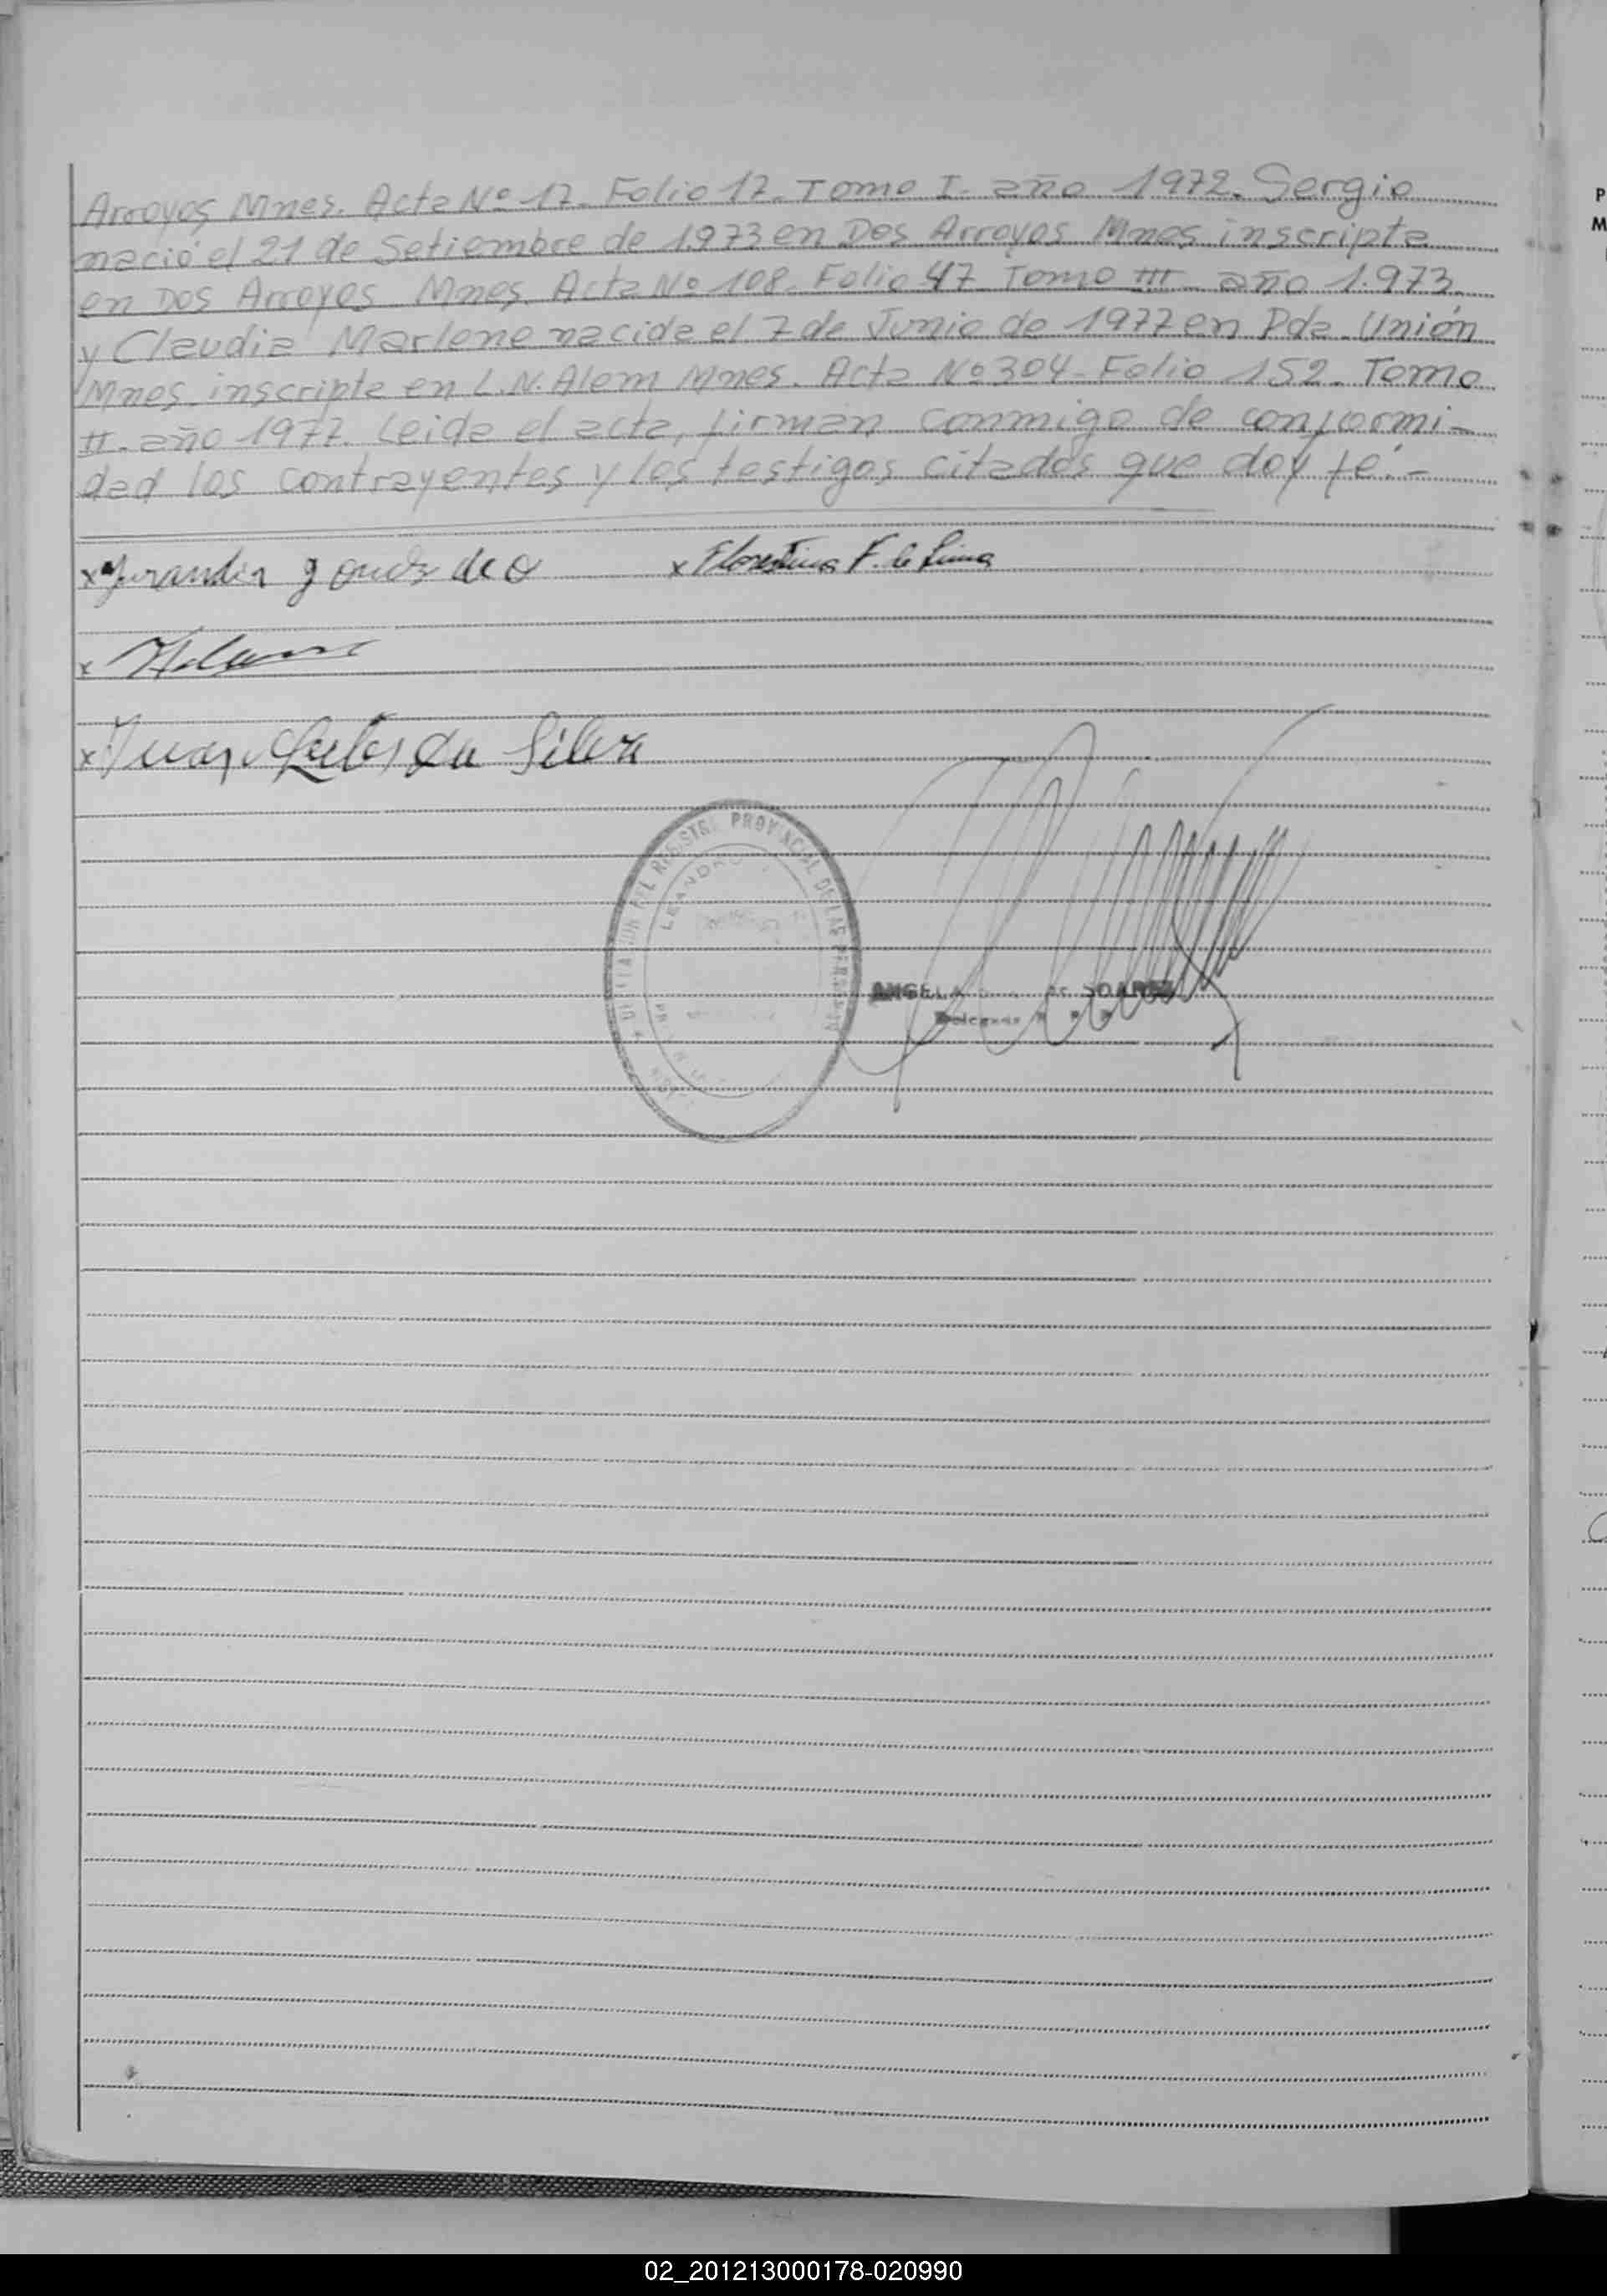 Arroyos Mnes. Acta Nº 17. Folio 17. Tomo I. año 1972. Sergio
nació el 21 de Setiembre de 1.973 en Dos Arroyos Mnes inscripta
en Dos Arroyos Mnes Acta Nº 108. Folio 47 Tomo III año 1.973.
y Claudia Marlene nacida el 7 de Junio de 1977 en Pda. Unión
Mnes inscripta en L.N. Alem Mnes. Acta Nº 304- Folio 152. Tomo
II. año 1977. Leida el acta, firman conmigo de conformi-
dad los contrayentes y los testigos citados que doy fé.-
x x Florentina F. de Lima
x
x Juan Carlos Da Silva
DEL REGISTRO PROVINCIAL DE LAS PERSONAS
LEANDRO
ANGELA de SOAREZ
P
M
02_201213000178-020990